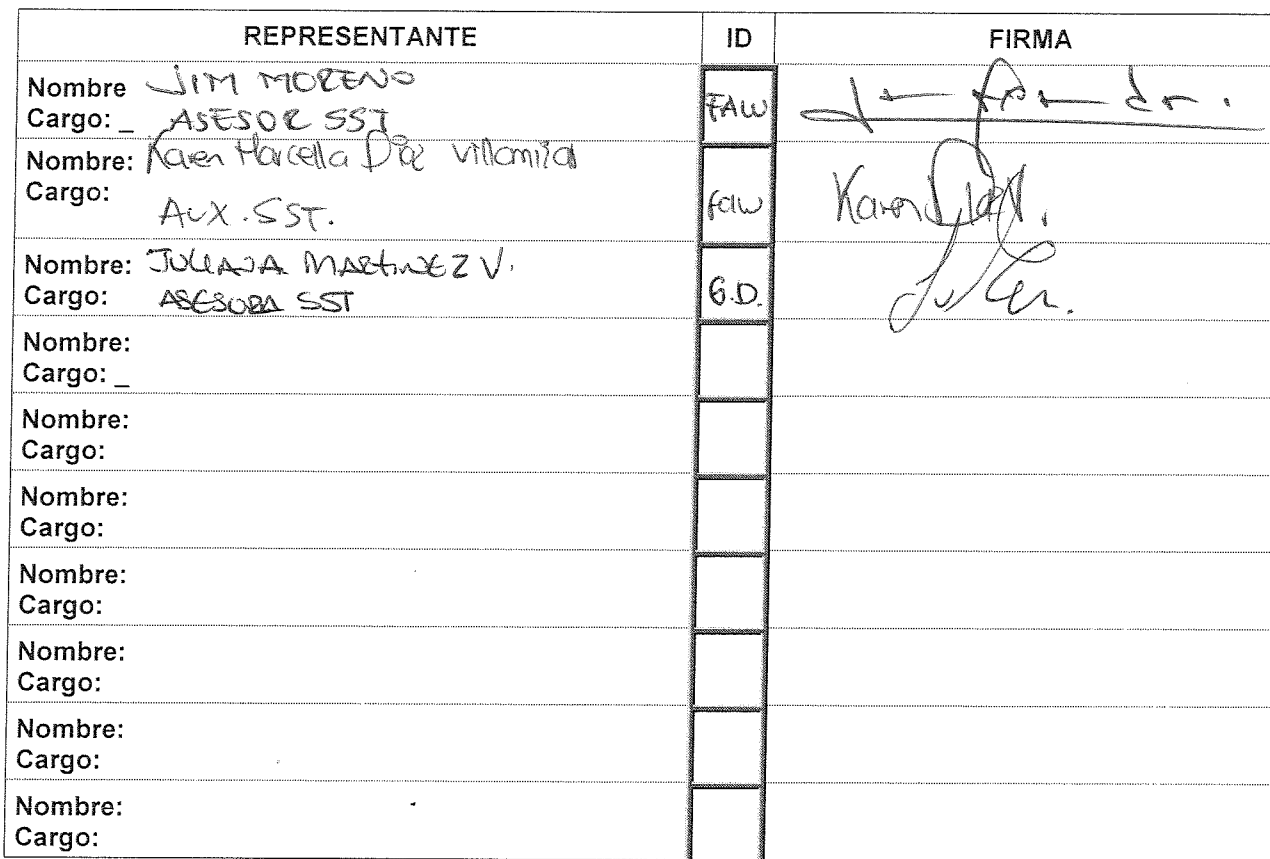 REPRESENTANTE ID FIRMA
Nombre JIM MORENO
Cargo: _ ASESOR SST
FAW
Nombre: Karen Marcella Díaz Villamizar
Cargo:
AUX. SST.
faw
Karen Díaz V.
Nombre: JULIANA MARTINEZ V.
Cargo: ASESORA SST
G.D.
Nombre:
Cargo: _
Nombre:
Cargo:
Nombre:
Cargo:
Nombre:
Cargo:
Nombre:
Cargo:
Nombre:
Cargo:
Nombre:
Cargo: